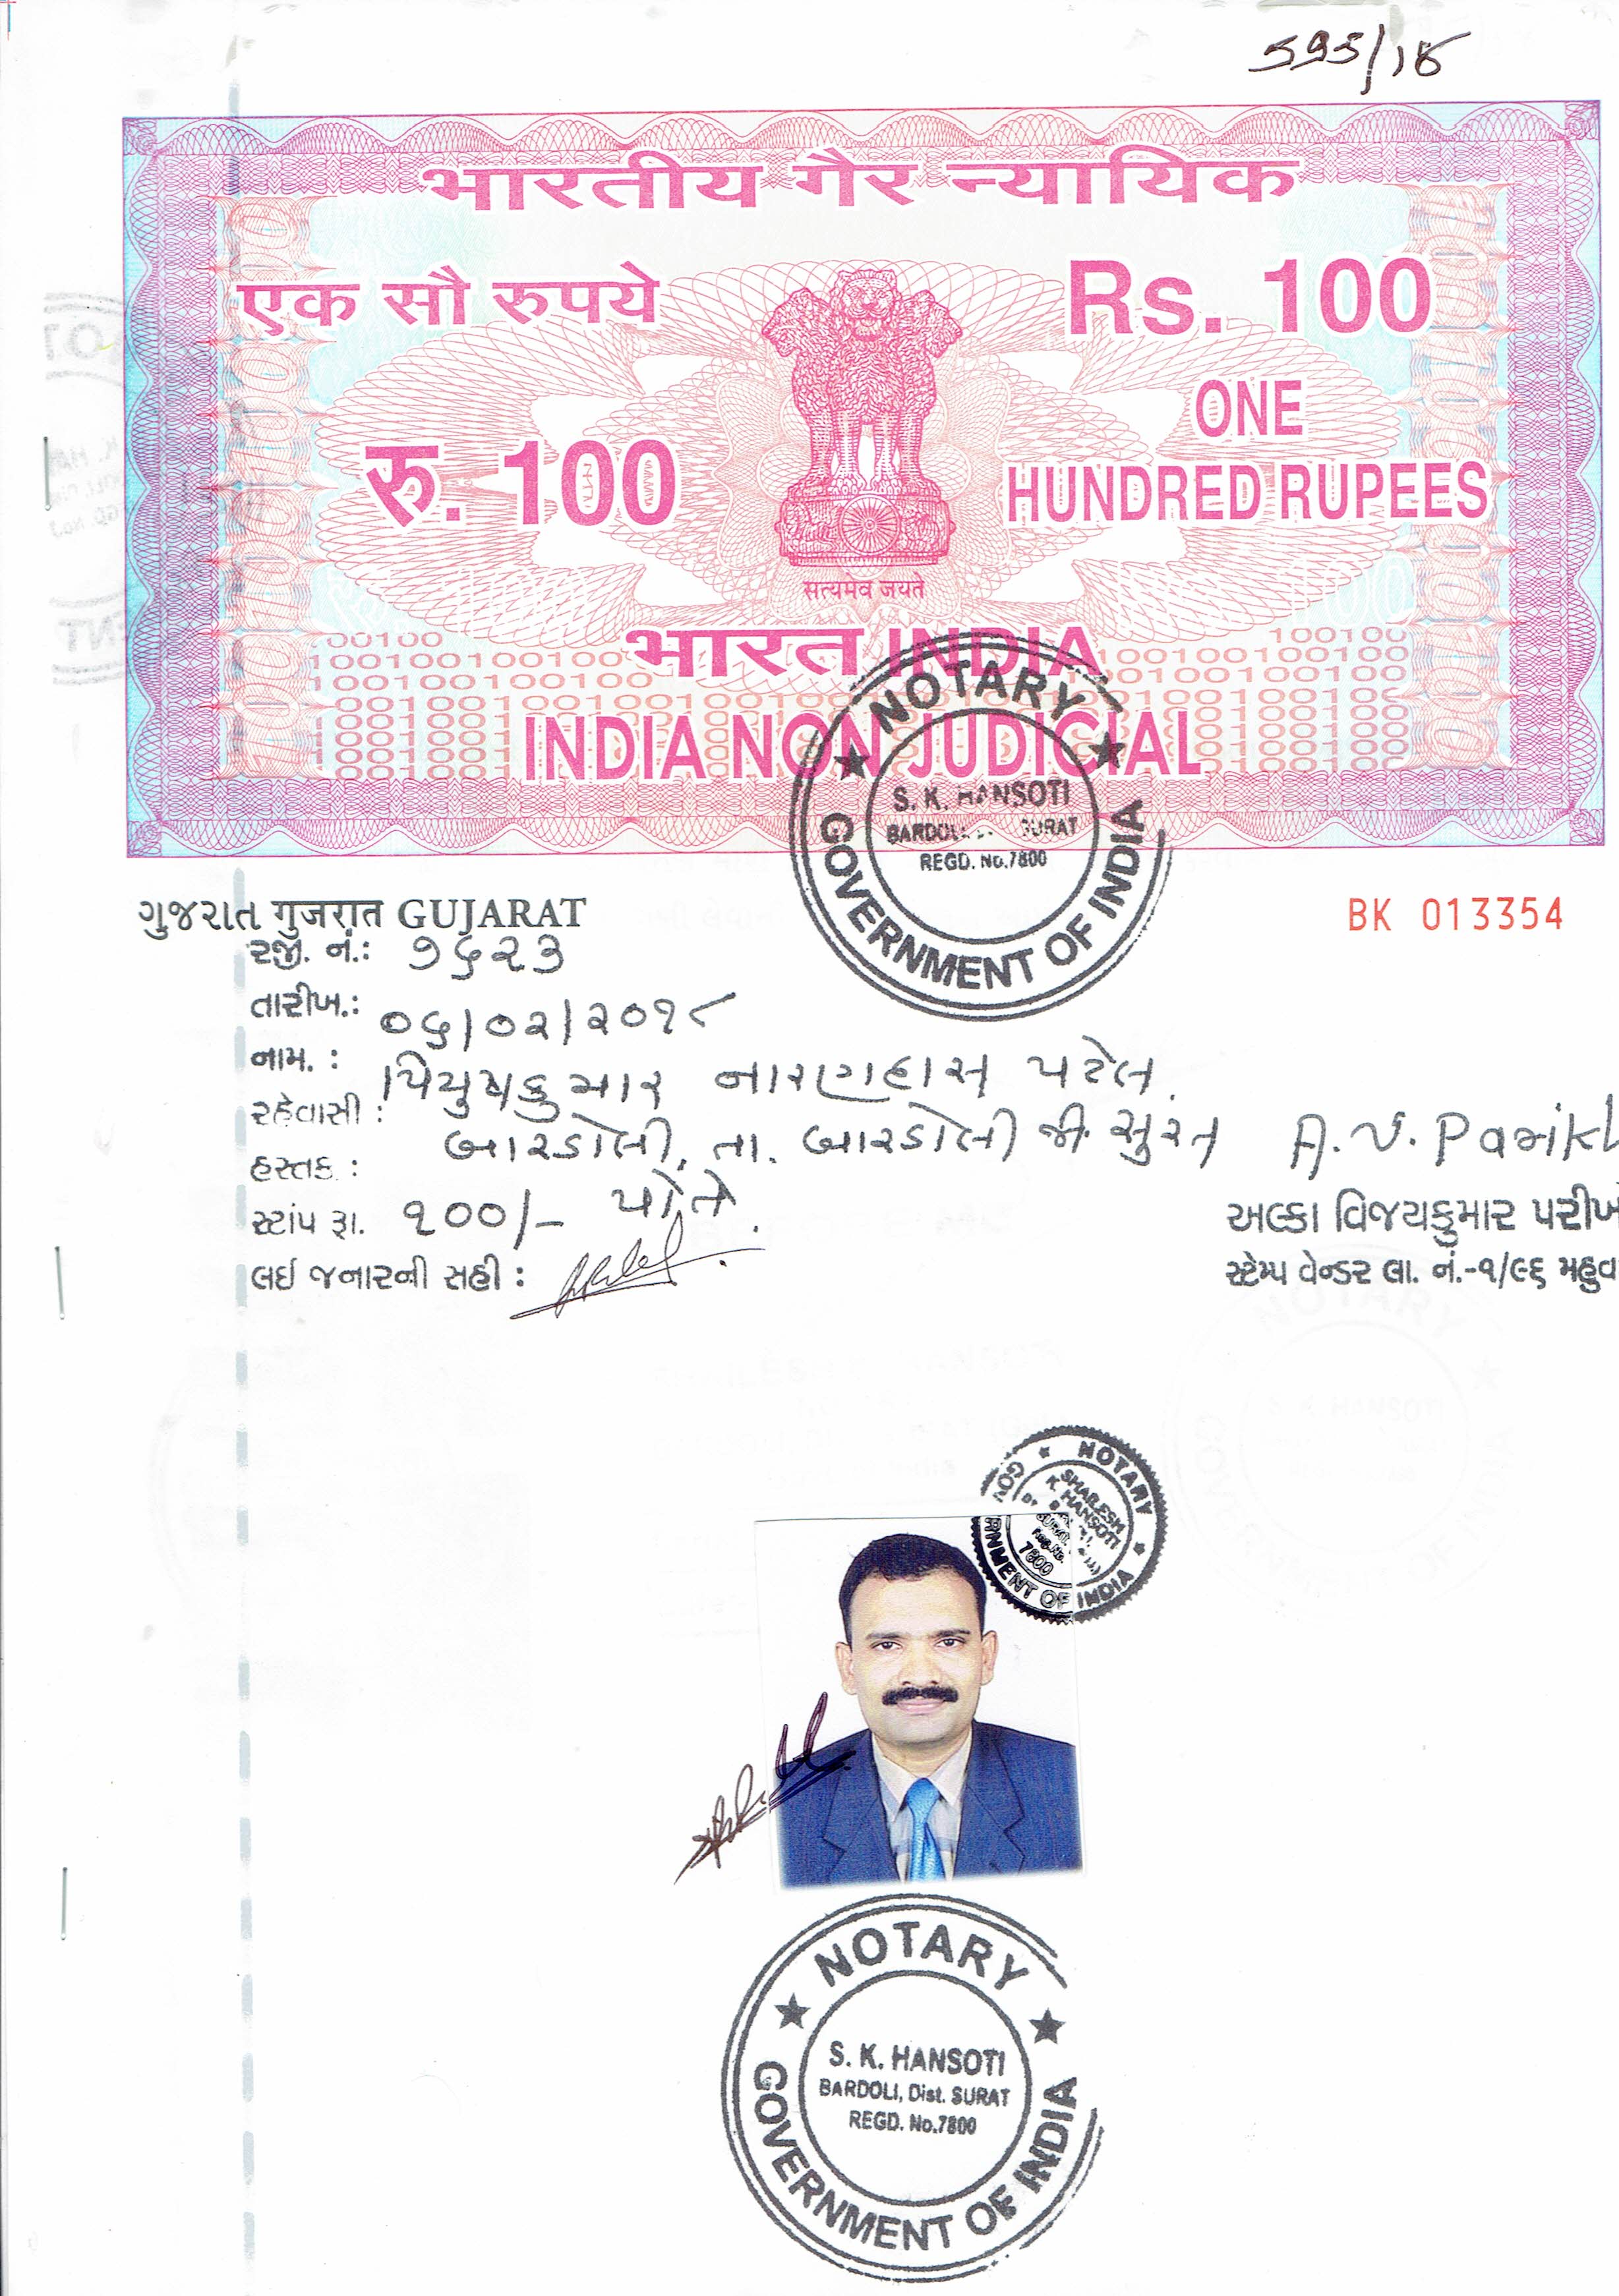 595/18
भारतीय गैर न्यायिक
एक सौ रुपये
Rs. 100
रु. 100
ONE
HUNDRED RUPEES
सत्यमेव जयते
भारत INDIA
INDIA NON JUDICIAL
NOTARY
S. K. HANSOTI
REGD. No.7800
GOVERNMENT OF INDIA
ગુજરાત गुजरात GUJARAT
BK 013354
રજી. નં.: ૧૬૨૩
તારીખ.: ૦૬/૦૨/૨૦૧૮
નામ. : પિયુષકુમાર નારણદાસ પટેલ.
રહેવાસી : બારડોલી. તા. બારડોલી જી. સુરત
A. V. Parikh
હસ્તક : પોતે.
સ્ટાંપ રૂા. ૧૦૦/-
અલ્કા વિજયકુમાર પરીખ
સ્ટેમ્પ વેન્ડર લા. નં.-૧/૯૬ મહુવા
લઈ જનારની સહી :
NOTARY
SHAILESH
K. HANSOTI
7800
GOVERNMENT OF INDIA
NOTARY
S. K. HANSOTI
BARDOLI, Dist. SURAT
REGD. No.7800
GOVERNMENT OF INDIA